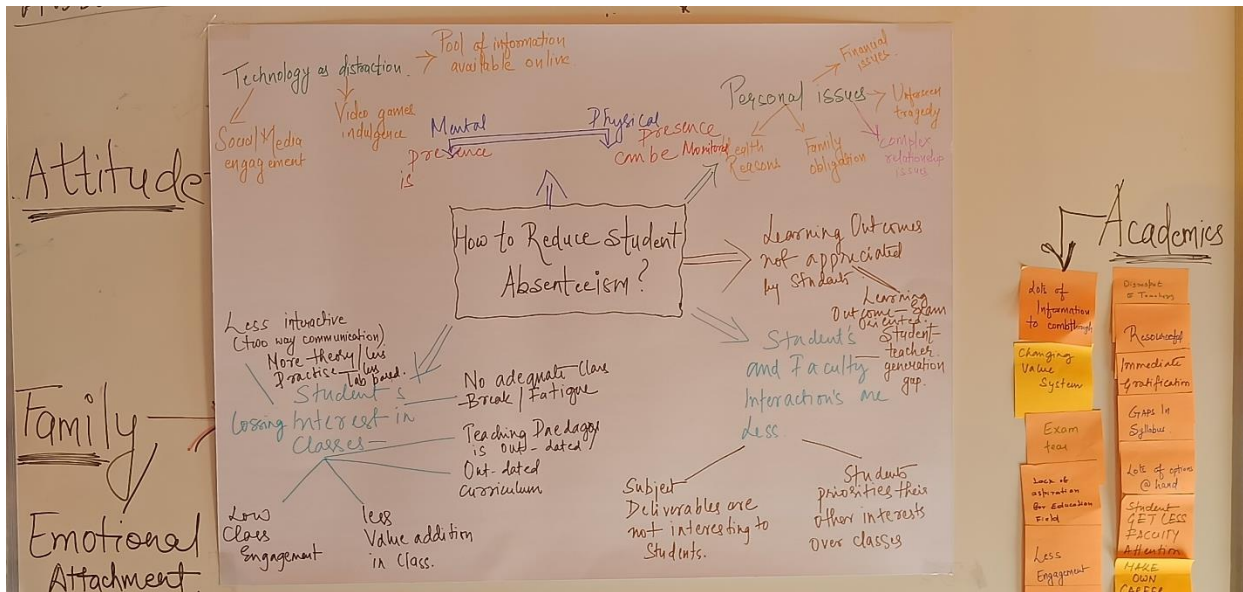 Attitude
Family
Emotional
Attachment
Technology as distraction.
Pool of information
available online.
Social Media
engagement
Video games
indulgence
Mental
presence
is
Physical
Presence
can be Monitored
Personal issues
Financial
issues.
Unforeseen
tragedy
Health
Reasons
Family
obligation
complex
relationship
issues
How to Reduce Student
Absenteeism?
Learning Outcomes
not appreciated
by Students
Learning
Outcome - Exam
Oriented.
Student's
and Faculty
Interaction's are
Less
Student
teacher
generation
gap.
Subject
Deliverables are
not interesting to
Students.
Students
priorities their
other interests
over classes
Less interactive
(two way communication)
More theory/Less
Practise - Less
lab based.
Student's
lossing Interest in
Classes
No adequate Class
Break/Fatigue
Teaching Paedagogy
is out-dated
Out-dated
curriculum
Low
Class
Engagement
less
Value addition
in Class.
Academics
Lots of
Information
to comb through
Changing
Value
System
Exam
fear
Lack of
aspiration
for Education
Field
Less
Engagement
Resourceful
Immediate
Gratification
GAPS In
Syllabus
Lots of options
@ hand
Student
GET LESS
FACULTY
Attention
MAKE
OWN
CAREER